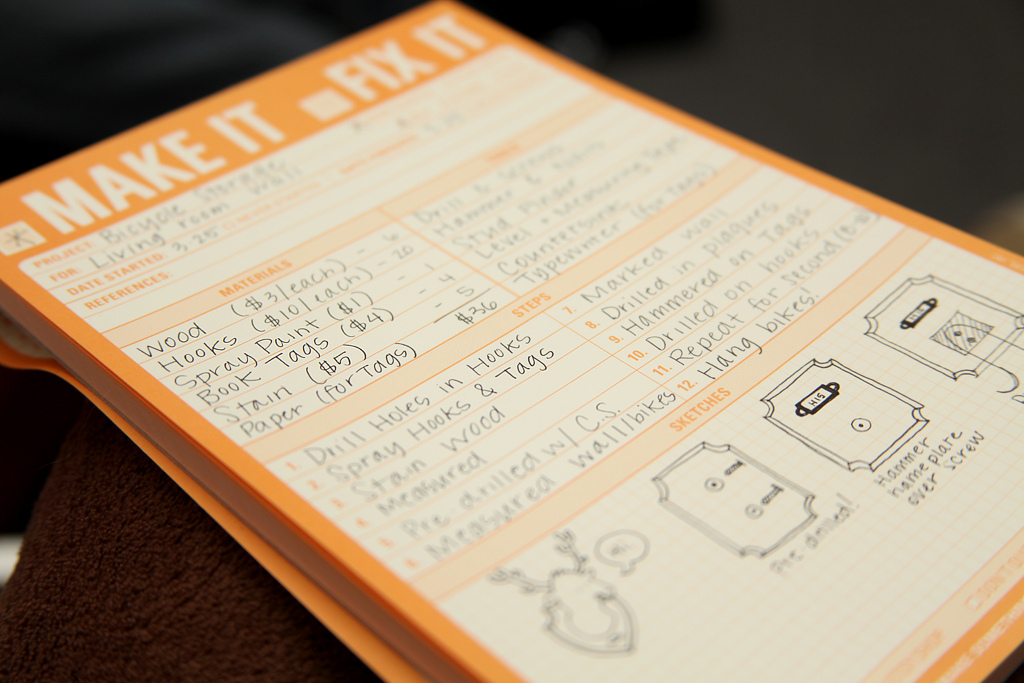 MAKE IT FIX IT
PROJECT: Bicycle Storage
FOR: Living room wall
DATE STARTED: 3.25
REFERENCES:
MATERIALS
Wood ($3/each) - 6
Hooks ($10/each) - 20
Spray Paint ($1) - 1
Book Tags ($4) - 4
Stain ($5) - 5
Paper (for Tags) $36
Drill &
Hammer &
Stud Finder
Level • Measuring Tape
Countersink
Typewriter (for tags)
STEPS
1. Drill Holes in Hooks
2. Spray Hooks & Tags
3. Stain Wood
4. Measured
5. Pre drilled w/ C.S.
6. Measured wall/bikes
7. Marked wall
8. Drilled in plaques
9. Hammered on Tags
10. Drilled on hooks
11. Repeat for second
12. Hang bikes!
SKETCHES
Hi!
Pre drilled!
HIS
Hammer
name plate
over screw
HIS